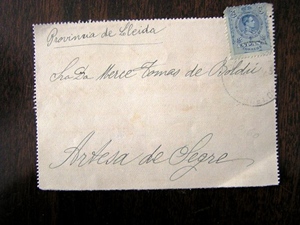 Provincia de Lleida
Sra Da Mercè Tomas de Boldú
Artesa de Segre